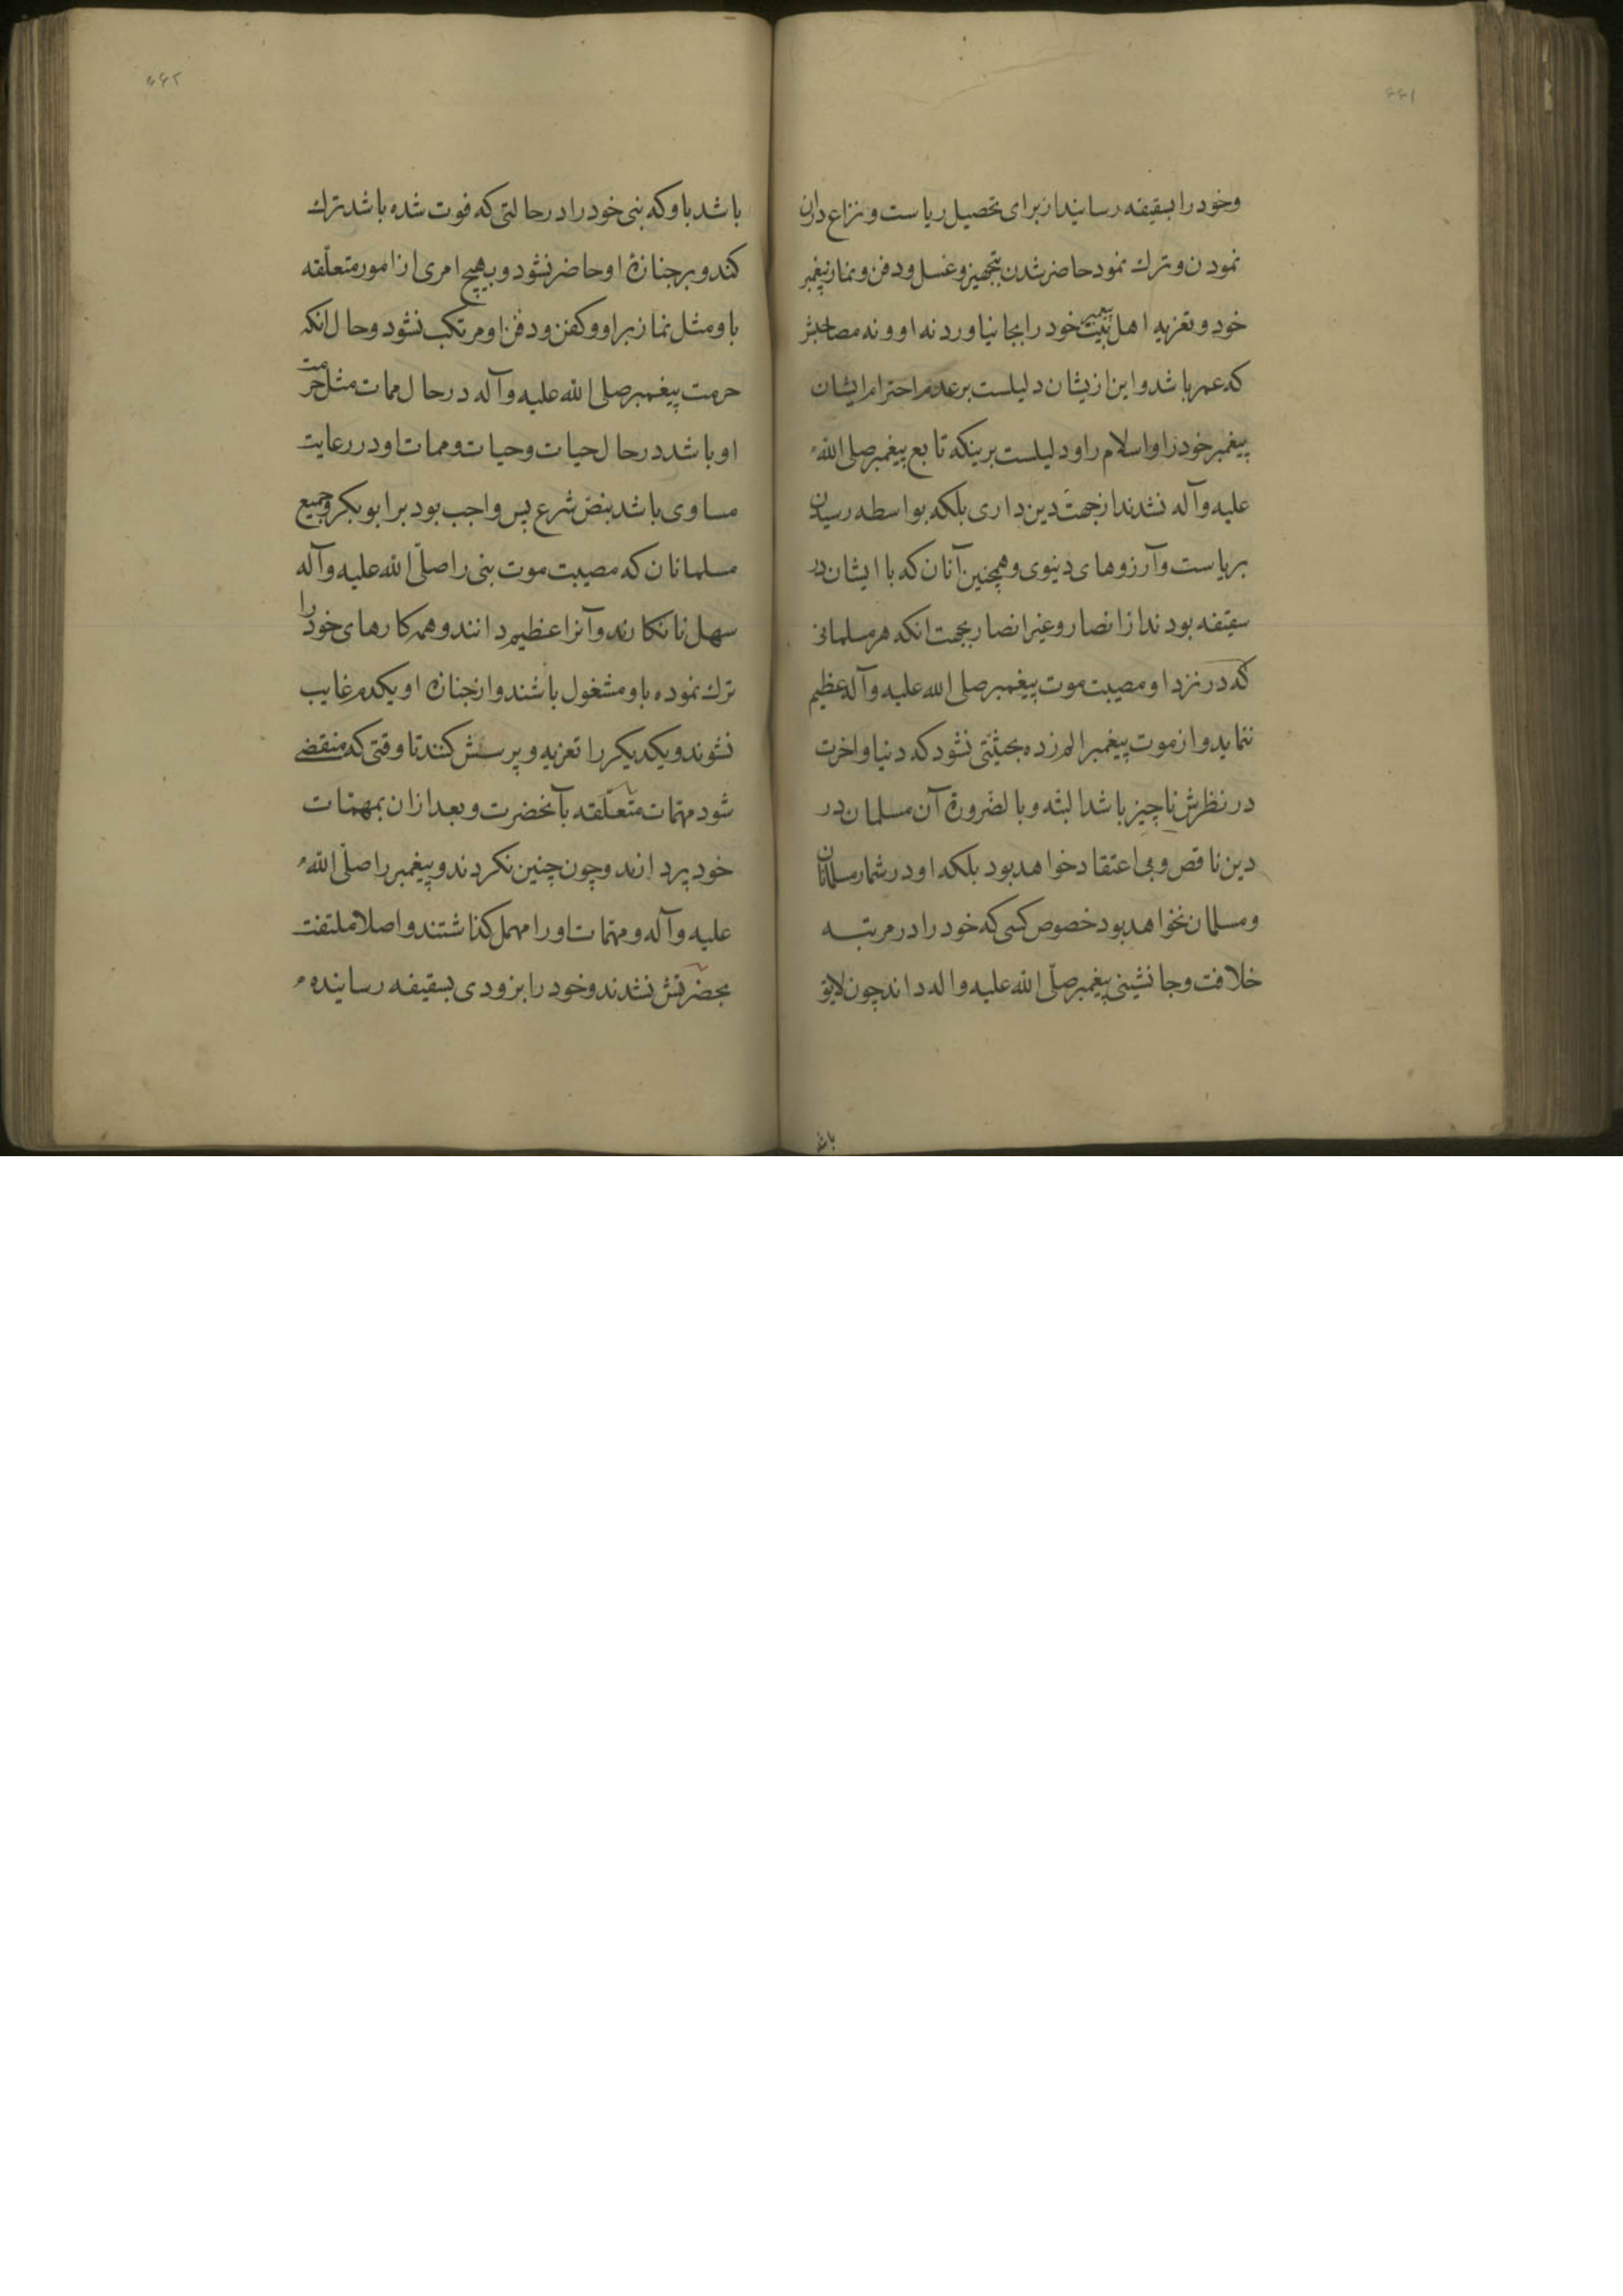 ۶۶۱
وخود را بسقیفه رسانید از برای تحصیل ریاست و نزاع دران
نمودن و ترك نمود حاضر شدن بتجهیز و غسل و دفن و نماز پیغمبر
خود و تعزیه اهل بیت خود را بجا نیاورد نه او و نه مصاحبش
که عمر باشد و این ازیشان دلیلست بر عدم احترام ایشان
پیغمبر خود را و اسلام را و دلیلست برینکه تابع پیغمبر صلی الله
علیه وآله نشدند از جهت دین داری بلکه بواسطه رسیدن
بریاست و آرزوهای دینوی و همچنین آنان که با ایشان در
سقیفه بودند از انصار و غیر انصار بجهت انکه هر مسلمانی
که در نزد او مصیبت موت پیغمبر صلی الله علیه وآله عظیم
ننماید و از موت پیغمبر الم زده بحیثتی نشود که دنیا و اخرت
در نظرش ناچیز باشد البته و بالضرورة آن مسلمان در
دین ناقص و بی اعتقاد خواهد بود بلکه او در شمار مسلمانان
و مسلمان نخواهد بود خصوص کسی که خود را در مرتبه
خلافت و جانشینی پیغمبر صلّی الله علیه واله داند چون لایق
باشد
۶۶۲
باشد باو که بنی خود را در حالتی که فوت شده باشد ترك
کند و بر جنازهٔ او حاضر نشود و بهیچ امری از امور متعلّقه
باو مثل نماز بر او و کفن و دفن او مرتکب نشود وحال انکه
حرمت پیغمبر صلی الله علیه وآله در حال ممات مثل حرمت
او باشد در حال حیات و حیات و ممات او در رعایت
مساوی باشد بنص شرع پس واجب بود بر ابو بکر و جمیع
مسلمانان که مصیبت موت بنی را صلّی الله علیه وآله
سهل نانکارند و آنرا عظیم دانند و همه کارهای خود را
ترك نموده باو مشغول باشند و از جنازه او یکدم غایب
نشوند و یکدیکر را تعزیه و پرسش کنند تا وقتی که منقضی
شود مهمّات متعلّقه بآنحضرت و بعد ازان بمهمّات
خود پردانند و چون چنین نکردند و پیغمبر را صلّی الله
علیه وآله و مهمّات او را مهمل کذاشتند و اصلا ملتفت
بحضرتش نشدند و خود را بزودی بسقیفه رسانیده